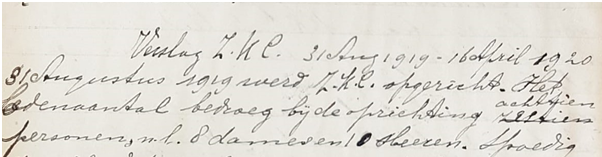 Verslag Z.K.C. 31 Aug 1919 - 16 April 1920
31 Augustus 1919 werd Z.K.C. opgericht. Het
ledenaantal bedroeg bij de oprichting achttien
personen, n.l. 8 dames en 10 heeren. Spoedig